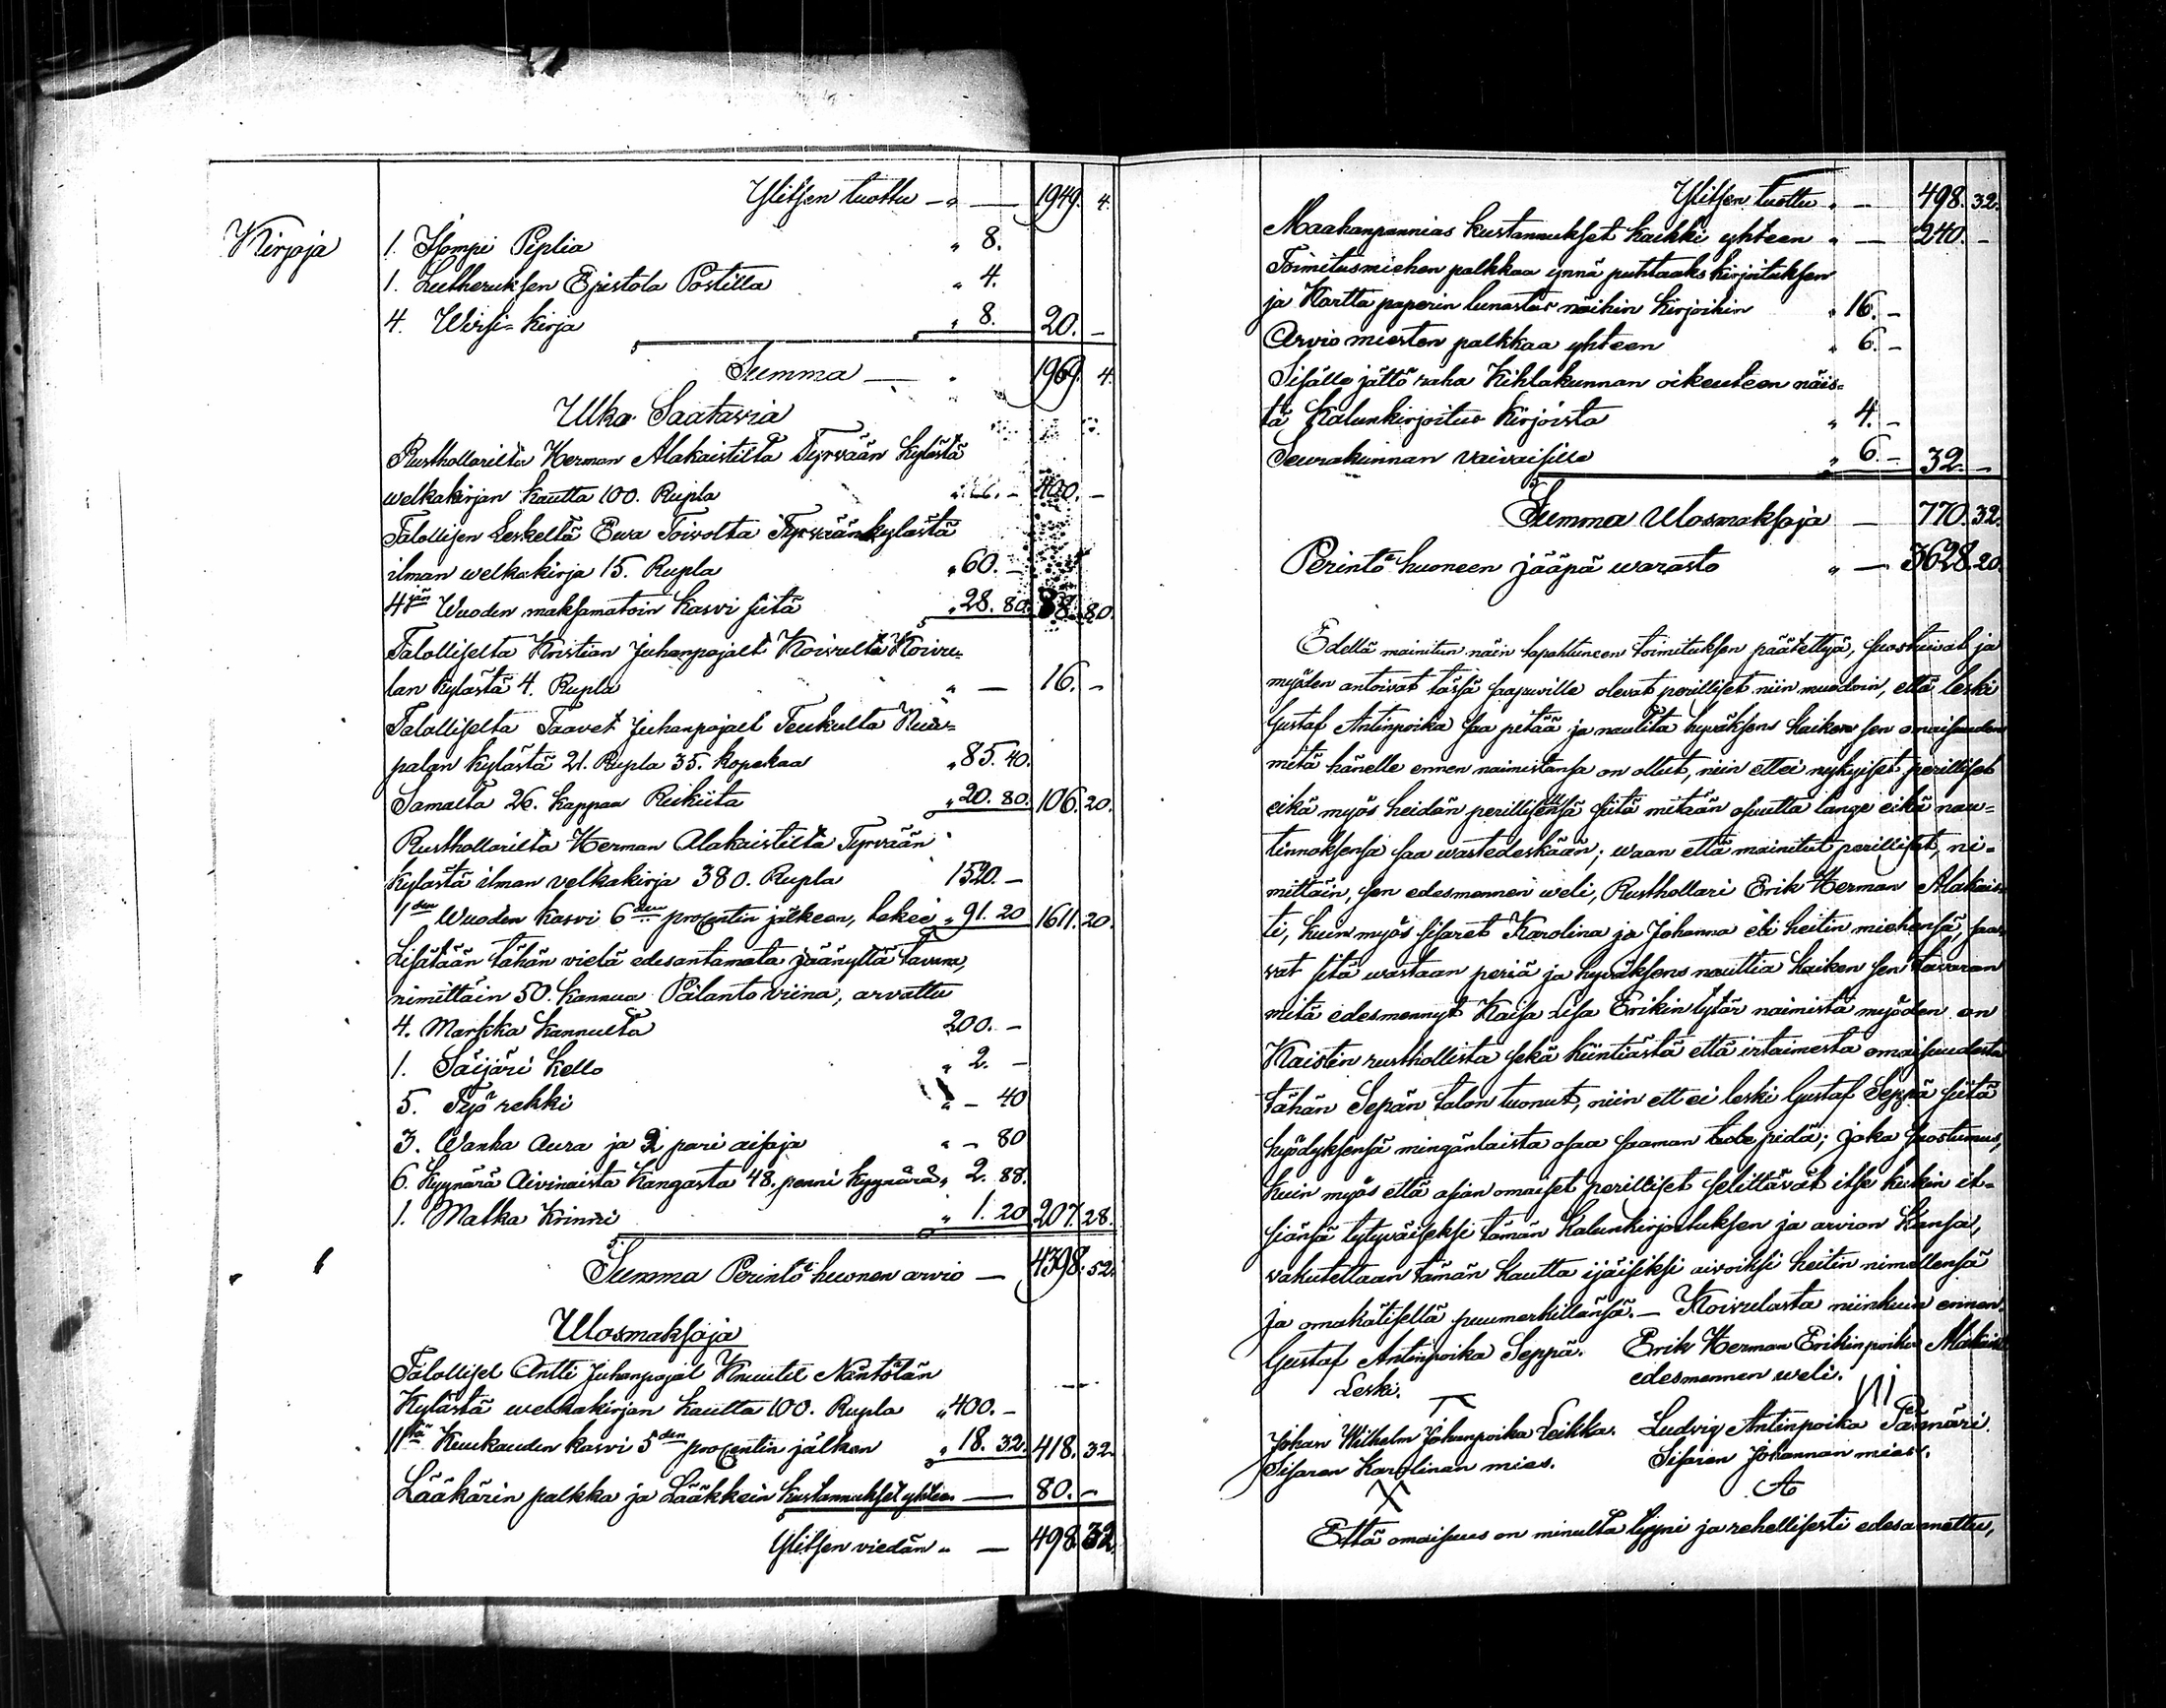 Ylitsen tuottu — " — 1949. 4.
Kirjoja 1. Isompi Piplia " 8.
1. Lutheruksen Epistola Postilla " 4.
4. Wirsi-kirja " 8. 20. —
Summa — " 1969. 4.
Ulko Saatavia
Rusthollarilta Herman Alakaistilta Tyrvään Kylästä
welkakirjan kautta 100. Rupla 400. —
Talollisen Leskeltä Ewa Toivolta Tyrväänkylästä
ilman welkakirja 15. Rupla " 60. —
4jän Wuoden maksamatoin kasvi siitä " 28. 80. 88. 80.
Talolliselta Kristian Juhanpojalt Koivulta Koivu-
lan kylästä 4. Rupla " — 16. —
Talolliselta Taavet Juhanpojalt Teukulta
palan kylästä 21. Rupla 35. kopekaa " 85. 40.
Samalta 26. kappaa Rukiita " 20. 80. 106. 20.
Rusthollarilta Herman Alakaistilta Tyrvään
kylästä ilman velkakirja 380. Rupla 1520. —
1den Wuoden kasvi 6den procentin jälkeen, tekee " 91. 20 1611. 20.
Lisätään tähän vielä edesantamata jäänyttä tavara,
nimittäin 50. kannua Palanto viina, arvattu
4. Markka kannulta 200. —
1. Säijäri kello " 2. —
5. Työ rekki " — 40
3. Wanha Aura ja 2 pari aisoja " — 80
6. Kyynärä Aivinaista Kangasta 48. penni kyynärä " 2. 88.
1. Matka Krinni " 1. 20 207. 28.
Summa Perintö huonen arvio — 4398. 52.
Ulosmaksoja
Talollisel Antti Juhanpojal Knuutil Näntölän
Kylästä welkakirjan kautta 100. Rupla " 400. —
11tä Kuukauden kasvi 5den procentin jälken " 18. 32. 418. 32.
Lääkärin palkka ja Lääkkein kustannukset yhteen — 80. —
Ylitsen viedän " — 498. 32.
Ylitsen tuottu " — 498. 32.
Maahanpannias kustannukset kaikki yhteen " — 240. —
Toimitusmiehen palkkaa ynnä puhtaaks kirjoituksen
ja Kartta paperin lunastus näihin kirjoihin " 16. —
Arvio miesten palkkaa yhteen " 6. —
Sisälle jättö raha Kihlakunnan oikeuteen näis-
tä Kalunkirjoitus Kirjoista " 4. —
Seurakunnan vaivaisille " 6. — 32. —
Summa Ulosmaksoja — 770. 32.
Perintö huoneen jääpä warasto " — 3628. 20.
Edellä mainitun näin tapahtuneen toimituksen päätettyä, suostuivat ja
myöden antoivat tässä saapuville olevat perilliset niin muodoin, että leski
Gustaf Antinpoika saa pitää ja nautita hyväksens kaiken sen omaisuuden
mitä hänelle ennen naimistansa on ollut, niin ettei nykyiset perilliset
eikä myös heidän perillisensä siitä mitään osuutta lange eikä nau-
tinnoksensa saa wastedeskään; waan että mainitut perilliset, ni-
mittäin, sen edesmennen weli, Rusthollari Erik Herman Alakais-
ti, kuin myös sisaret Karolina ja Johanna eli heitin miehensä, saa-
vat sitä wastaan periä ja hyväksens nauttia kaiken sen tavaran
mitä edesmennyt Kaisa Lisa Erikin tytär naimista myöden on
Kaistin rusthollista sekä kiintiästä että irtaimesta omaisuudesta
tähän Sepän talon tuonut, niin ett ei leski Gustaf Seppä siitä
hyödyksensä mingänlaista osaa saaman tule pidä; joka suostumus,
kuin myös että asian omaiset perilliset selittävät itse kukin it-
siänsä tytyväiseksi tämän Kalunkirjoituksen ja arvion kansa,
vakutettaan tämän kautta ijäiseksi aivoiksi heitin nimellensä
ja omakätisellä puumerkillänsä. — Koivulasta niinkuin ennen.
Gustaf Antinpoika Seppä. Erik Herman Erikinpoika Alakaisti
Leski. edesmennen weli.
Johan Wilhelm Johanpoika Leikka. Ludvig Antinpoika
Sisaren Karolinan mies. Sisaren Johannan mies.
Että omaisuus on minulta ja rehellisesti edesannettu,